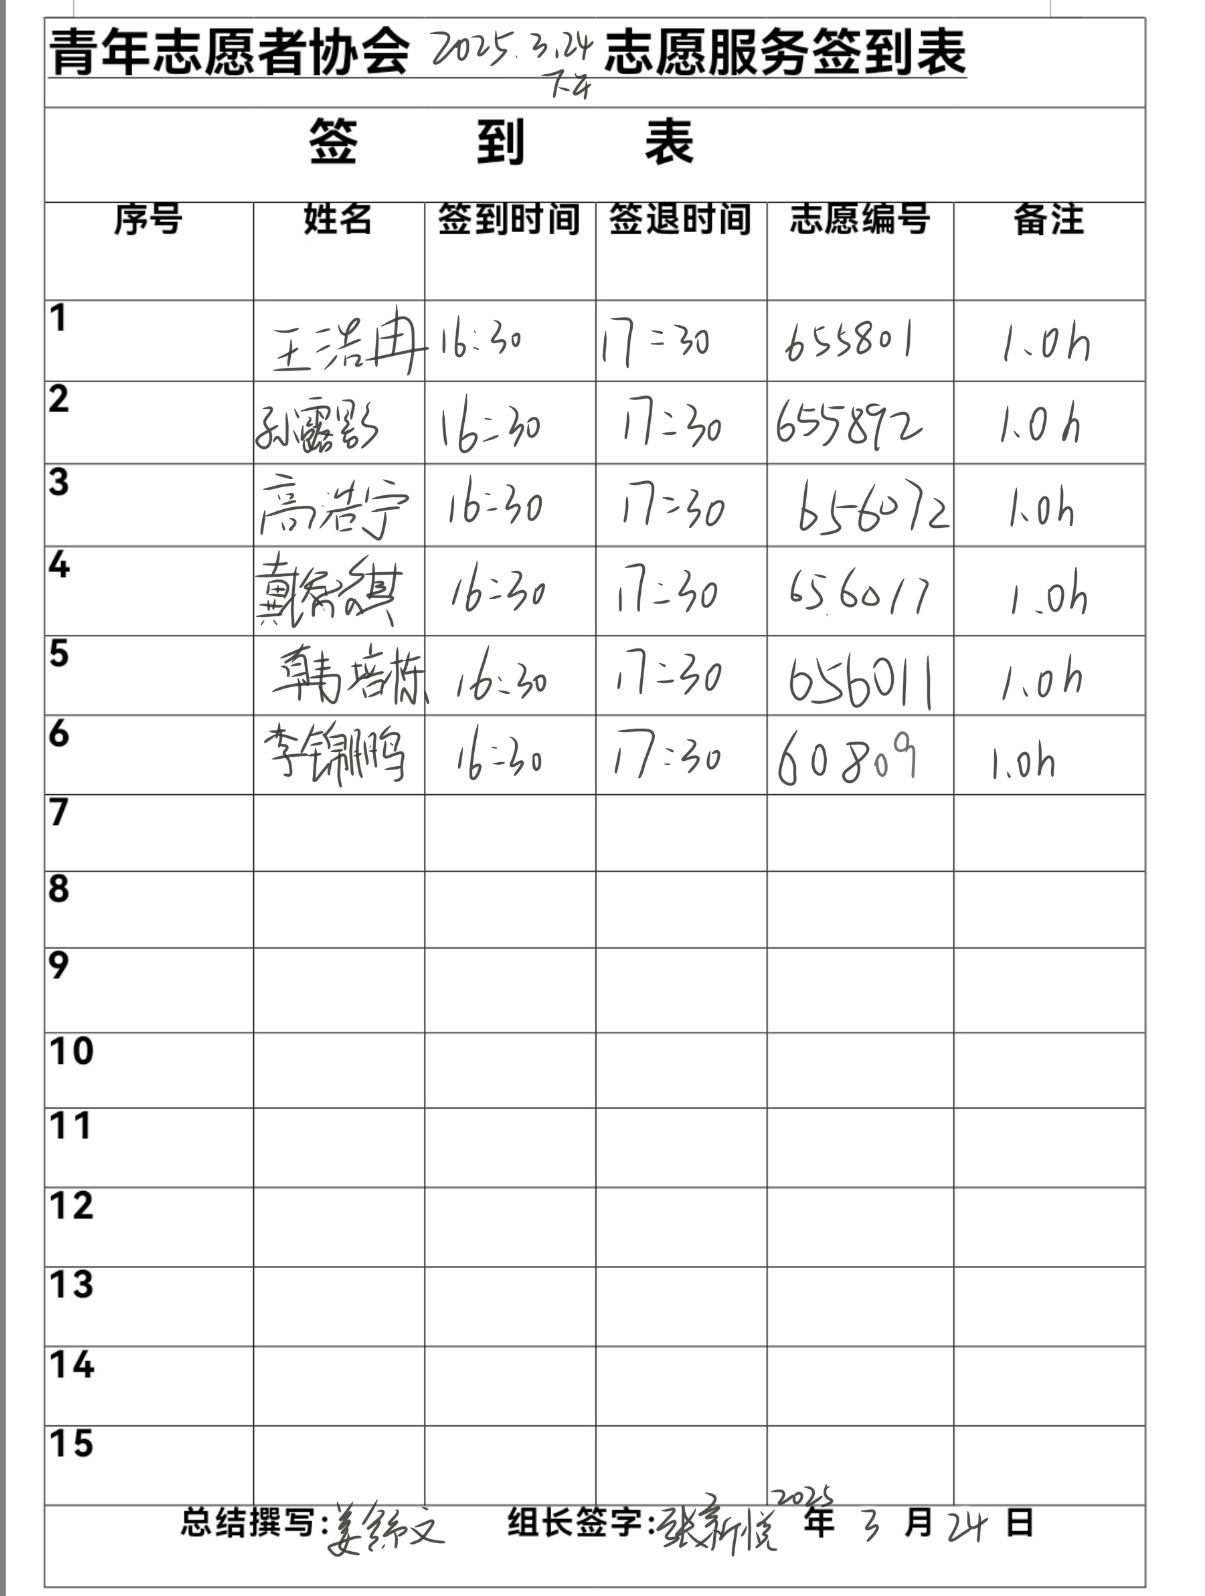 青年志愿者协会 2025.3.24 志愿服务签到表
下午
签 到 表
序号 姓名 签到时间 签退时间 志愿编号 备注
1 王浩冉 16:30 17:30 655801 1.0h
2 孙露影 16:30 17:30 655892 1.0h
3 高浩宁 16:30 17:30 656072 1.0h
4 戴 16:30 17:30 656017 1.0h
5 韩培栋 16:30 17:30 656011 1.0h
6 李锦鹏 16:30 17:30 60809 1.0h
7
8
9
10
11
12
13
14
15
总结撰写:姜舒文 组长签字:张新悦 2025年3月24日